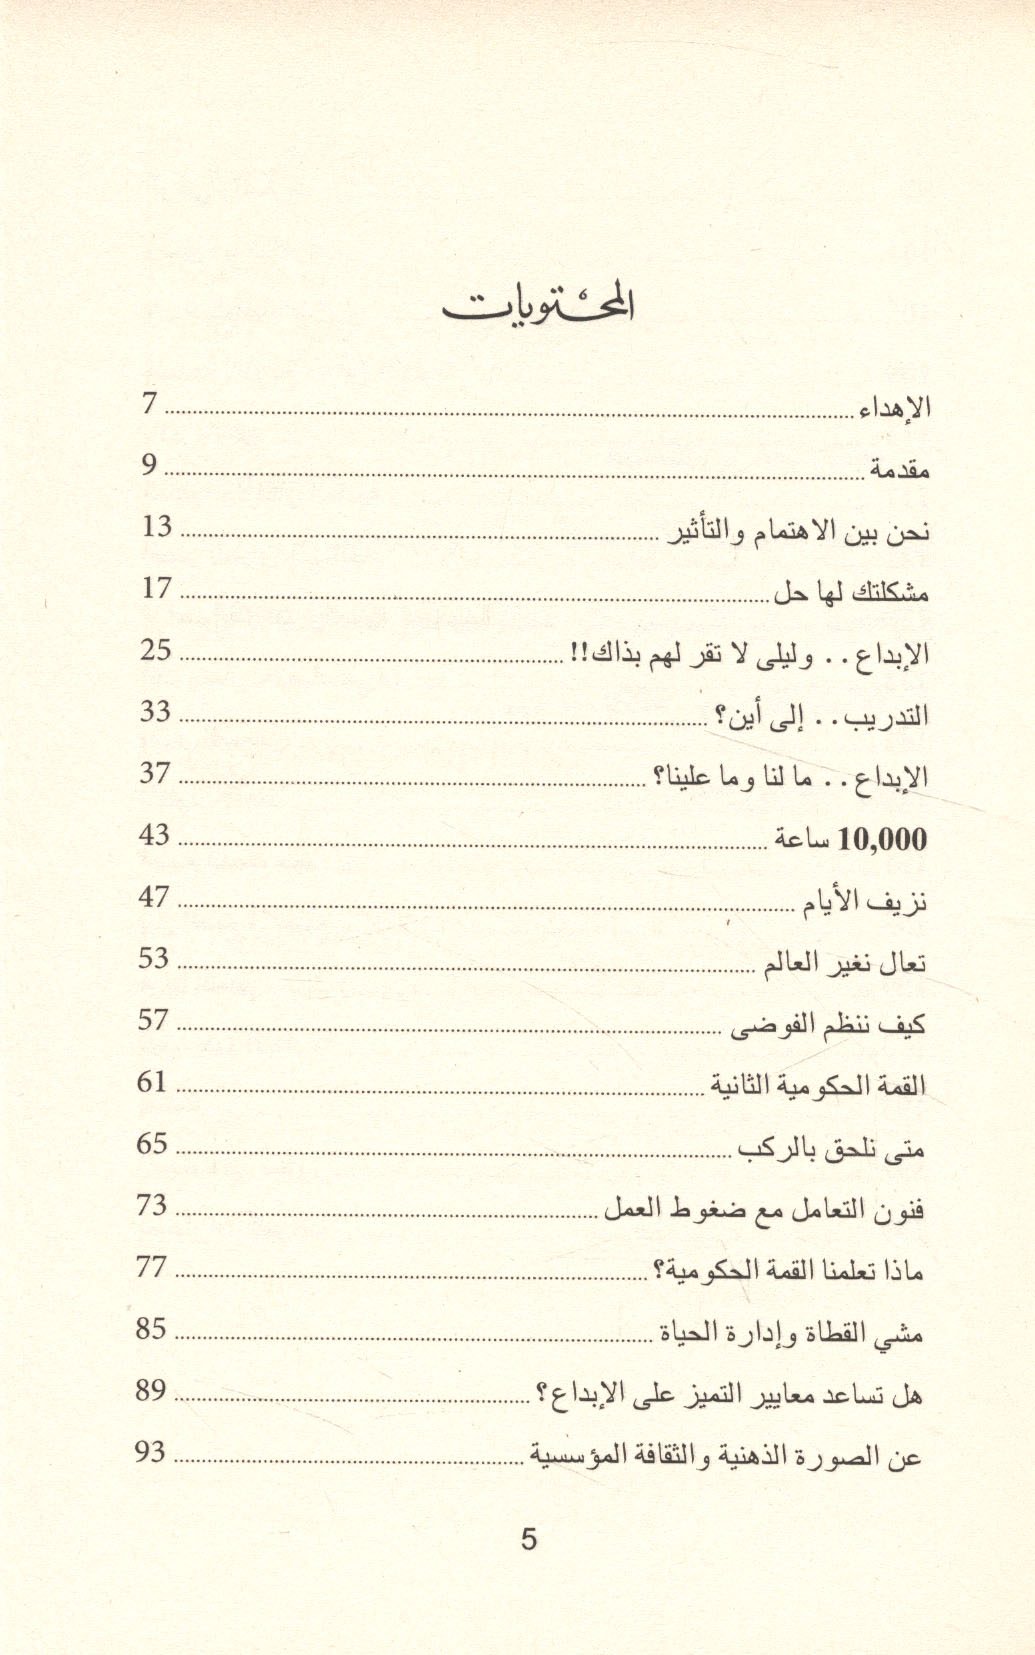 المحتويات
الإهداء ........ 7
مقدمة ........ 9
نحن بين الاهتمام والتأثير ........ 13
مشكلتك لها حل ........ 17
الإبداع.. وليلى لا تقر لهم بذاك!! ........ 25
التدريب.. إلى أين؟ ........ 33
الإبداع.. ما لنا وما علينا؟ ........ 37
10,000 ساعة ........ 43
نزيف الأيام ........ 47
تعال نغير العالم ........ 53
كيف ننظم الفوضى ........ 57
القمة الحكومية الثانية ........ 61
متى نلحق بالركب ........ 65
فنون التعامل مع ضغوط العمل ........ 73
ماذا تعلمنا القمة الحكومية؟ ........ 77
مشي القطاة وإدارة الحياة ........ 85
هل تساعد معايير التميز على الإبداع؟ ........ 89
عن الصورة الذهنية والثقافة المؤسسية ........ 93
5